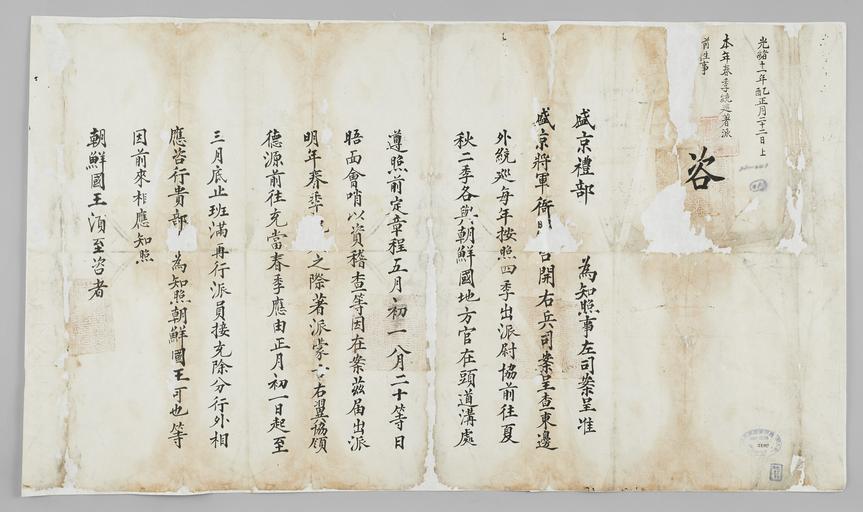 光緒十一年乙酉正月二十二日上
本年春季統巡著派
前往事
咨
盛京禮部 為知照事左司案呈准
盛京將軍衙門咨開右兵司案呈查東邊
外統巡每年按照四季出派尉協前往夏
秋二季各與朝鮮國地方官在頭道溝處
遵照前定章程五月初一八月二十等日
晤面會哨以資稽查等因在案茲屆出派
明年春季之際著派蒙古右翼協領
德源前往充當春季應由正月初一日起至
三月底止班滿再行派員接充除分行外相
應咨行貴部為知照朝鮮國王可也等
因前來相應知照
朝鮮國王須至咨者